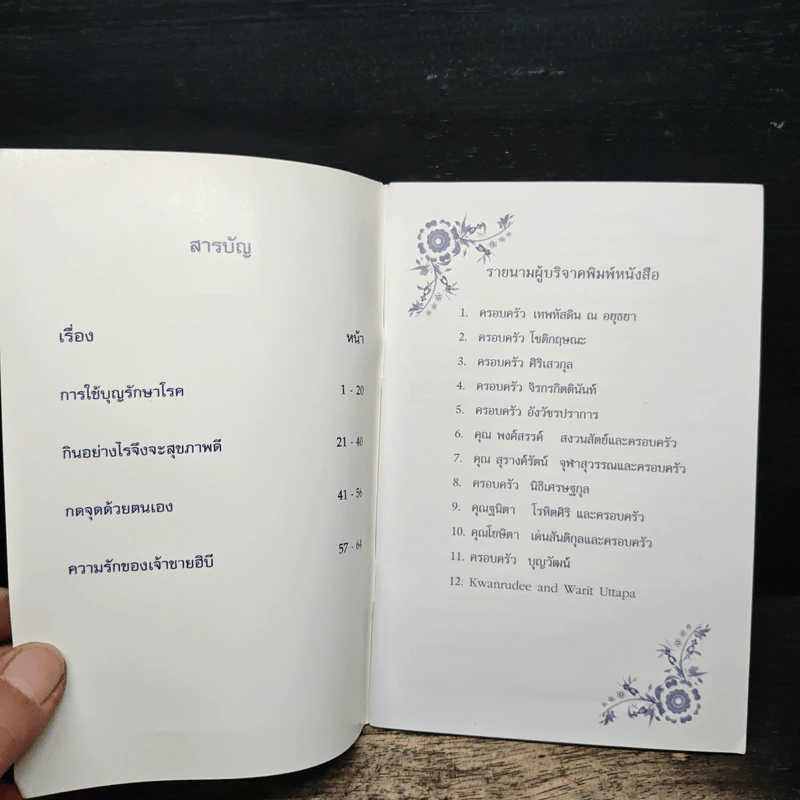 สารบัญ
เรื่อง หน้า
การใช้บุญรักษาโรค 1 - 20
กินอย่างไรจึงจะสุขภาพดี 21 - 40
กดจุดด้วยตนเอง 41 - 56
ความรักของเจ้าชายฮิบี 57 - 64
รายนามผู้บริจาคพิมพ์หนังสือ
1. ครอบครัว เทพหัสดิน ณ อยุธยา
2. ครอบครัว โชติกฤษณะ
3. ครอบครัว ศิริเสวกุล
4. ครอบครัว จิรกรกิตตินันท์
5. ครอบครัว อังวัชรปราการ
6. คุณ พงศ์สรรค์ สงวนสัตย์และครอบครัว
7. คุณ สุรางค์รัตน์ จุฬาสุวรรณและครอบครัว
8. ครอบครัว นิธิเศรษฐกุล
9. คุณฐนิตา โรหิตศิริ และครอบครัว
10. คุณโยษิตา เด่นสันติกุลและครอบครัว
11. ครอบครัว บุญวัฒน์
12. Kwanrudee and Warit Uttapa